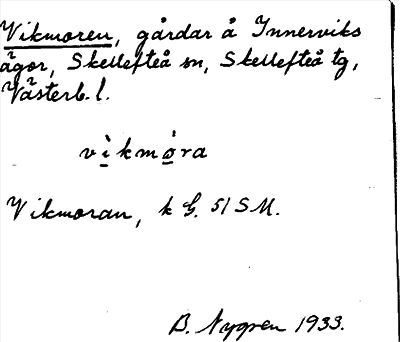 Vikmoren, gårdar å Innerviks
ägor, Skellefteå sn, Skellefteå tg,
Västerb. l.
vìkmo̱ra
Vikmoran, k G. 51 S M.
B. Nygren 1933.